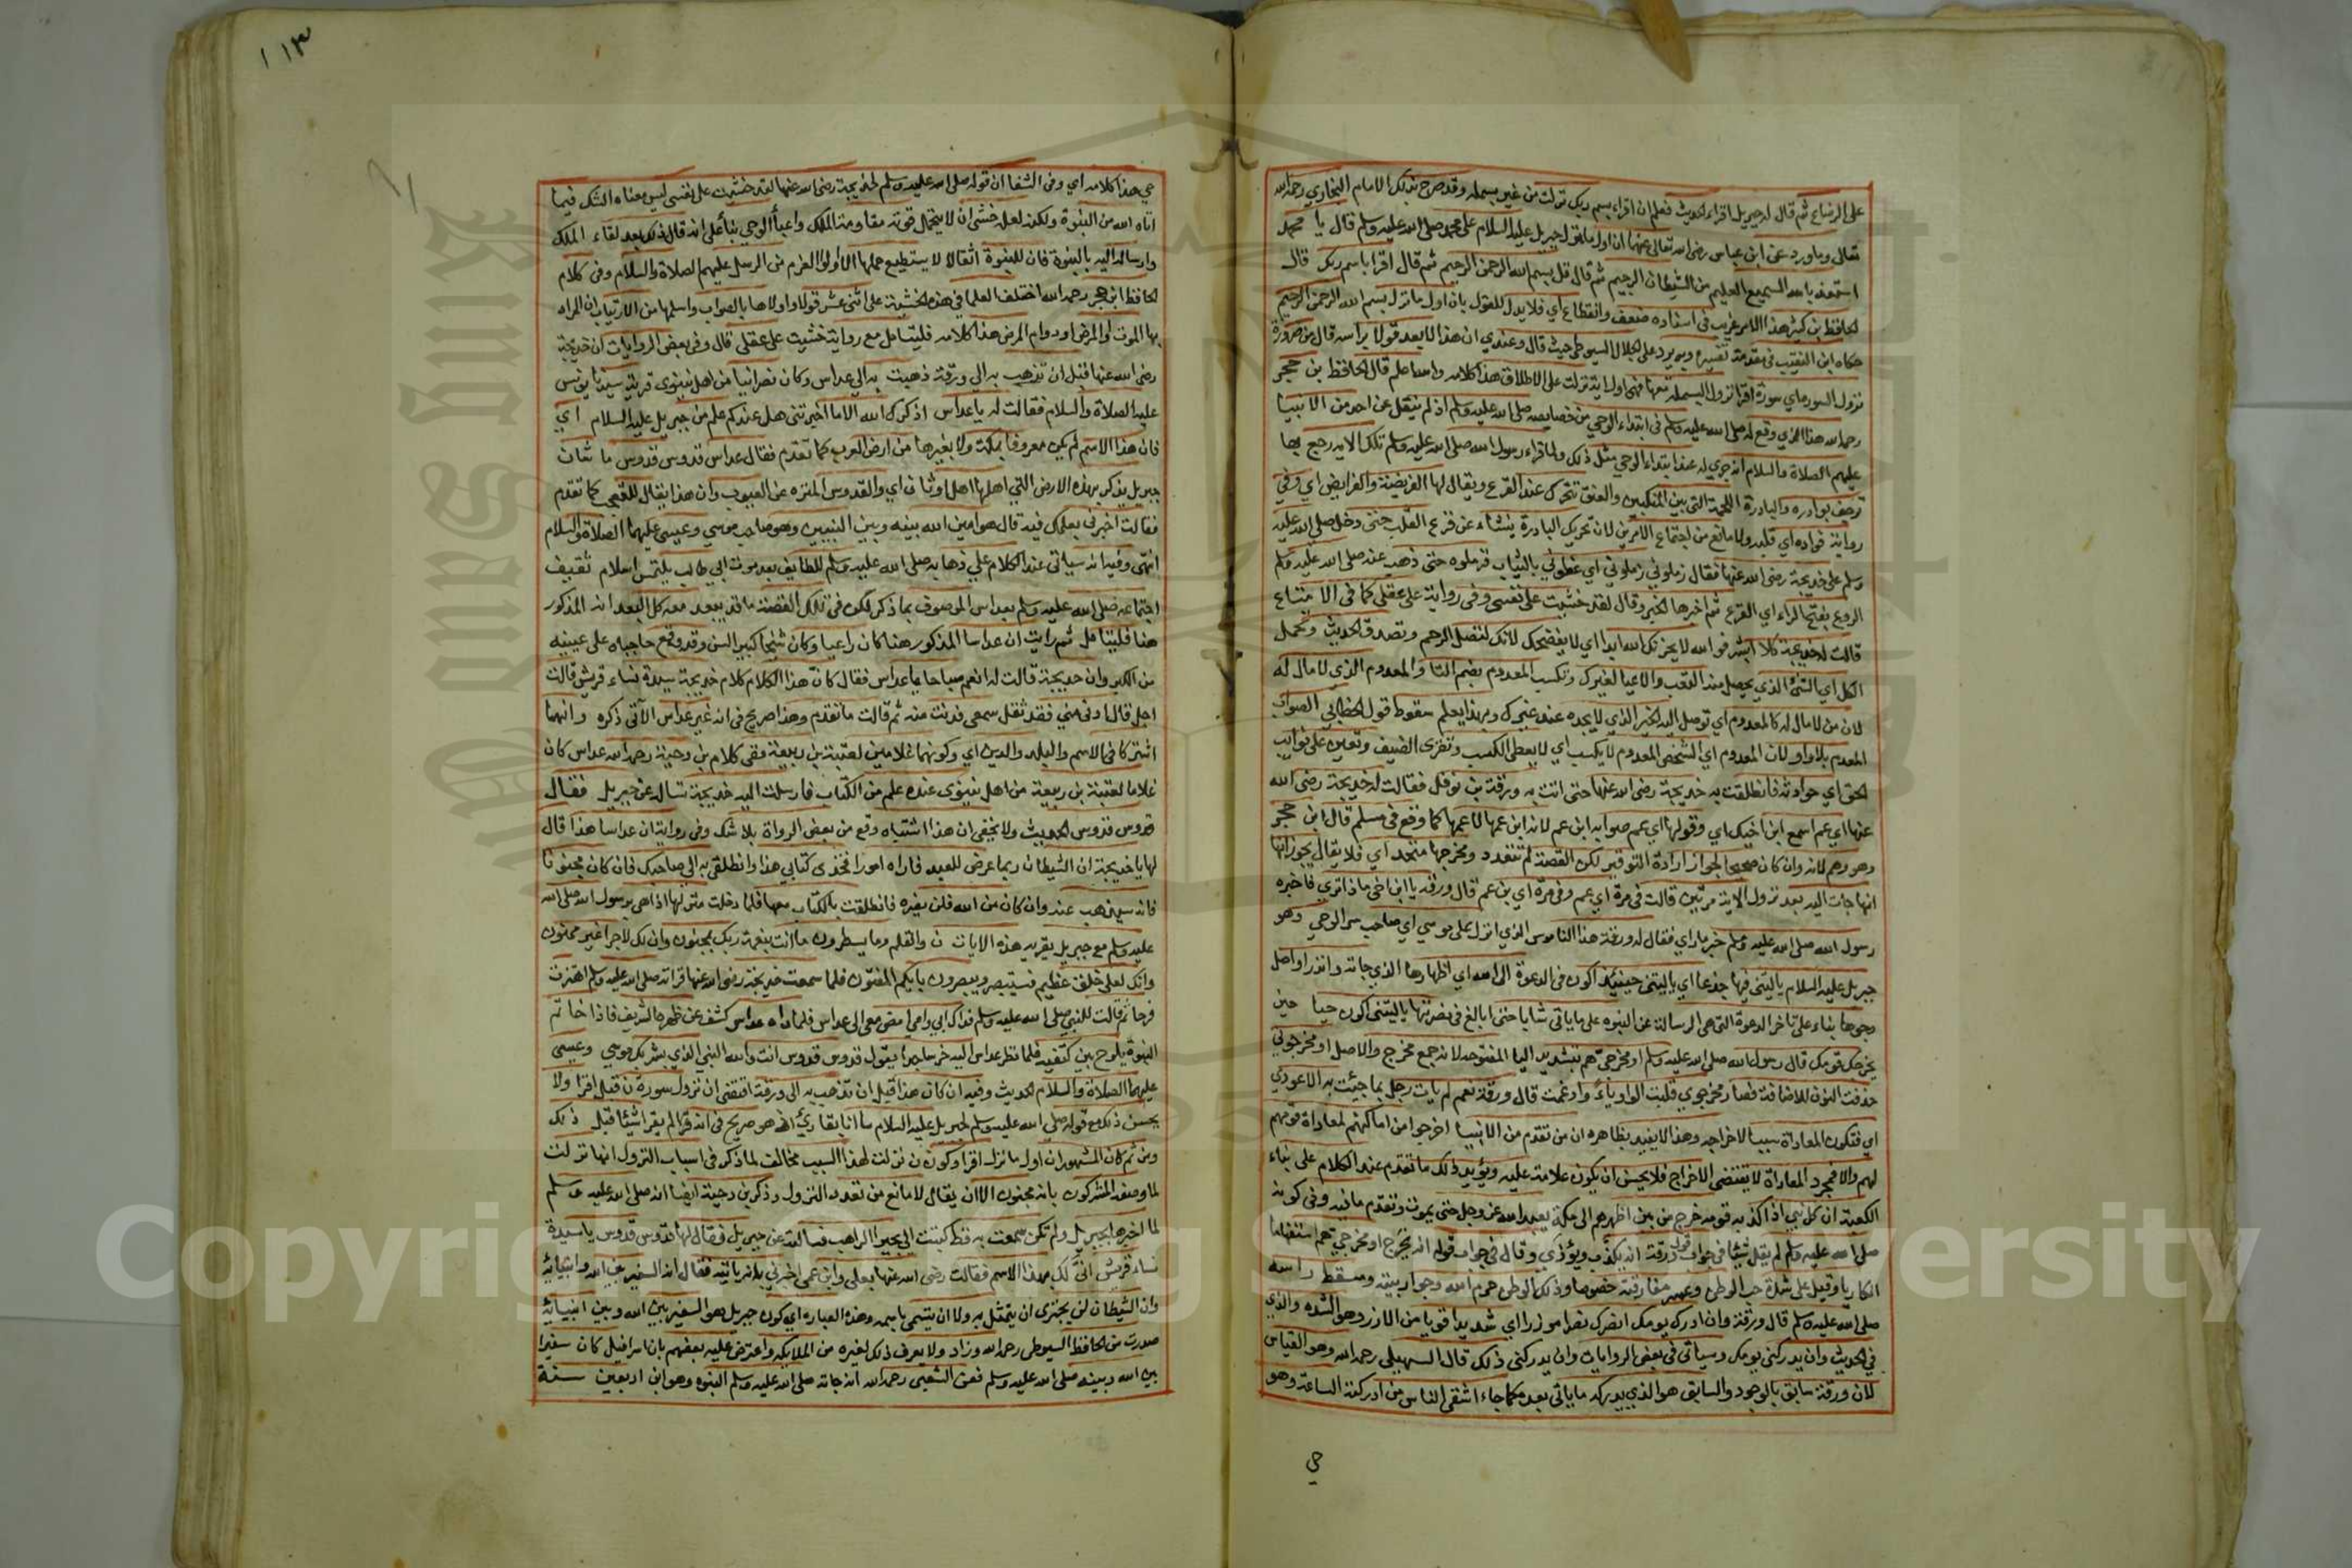 على الرضاع ثم قال له جبريل اقراء الحديث فعلم ان اقراء بسم ربك نزلت من غير بسمله وقد صرح بذلك الامام البخاري رحمه الله
تعالى وما ورد عن ابن عباس رضي الله تعالى عنهما ان اول ما نزل جبريل عليه السلام على محمد صلى الله عليه وسلم قال يا محمد
استعذ بالله السميع العليم من الشيطان الرجيم ثم قال قل بسم الله الرحمن الرحيم ثم قال اقرا باسم ربك قال
الحافظ ابن كثير هذا الاثر غريب في اسناده ضعف وانقطاع اي فلا يدل للقول بان اول ما نزل بسم الله الرحمن الرحيم
حكاه ابن النقيب في مقدمة تفسيره وبه يرد على الجلال السيوطي حيث قال وعندي ان هذا لا يعد قولا براسه قال من ضرورة
نزول السوره اي سورة اقرا نزول البسملة معها فهي اول اية نزلت على الاطلاق هذا كلامه والله اعلم قال الحافظ بن حجر
رحمه الله هذا الذي وقع له صلى الله عليه وسلم في ابتداء الوحي من خصايصه صلى الله عليه وسلم اذ لم ينقل عن احد من الانبيا
عليهم الصلاة والسلام انه جري له عند ابتداء الوحي مثل ذلك ولما قراء رسول الله صلى الله عليه وسلم تلك الايه رجع بها
ترجف بوادره والبادرة اللحمة التي بين المنكبين والعنق تتحرك عند الفزع ويقال لها الفريضة والفرايض اي وفي
رواية فواده اي قلبه ولا مانع من اجتماع الامرين لان تحريك البادرة ينشاء عن فزع القلب حتى دخل صلى الله عليه
وسلم على خديجة رضي الله عنها فقال زملوني زملوني اي غطوني بالثياب فزملوه حتى ذهب عنه صلى الله عليه وسلم
الروع بفتح الراء اي الفزع ثم اخبرها الخبر وقال لقد خشيت على نفسي وفي رواية على عقلي كما في الامتاع
قالت له خديجة كلا ابشر فوالله لا يخزيك الله ابدا اي لا يفضحك لانك لتصل الرحم وتصدق الحديث وتحمل
الكل اي الشئ الذي يحصل منه التعب والاعيا لغيرك وتكسب المعدوم بضم التا والمعدوم الذي لا مال له
لان من لا مال له كالمعدوم اي توصل اليه الخير الذي لا يجده عند غيرك وبهذا يعلم سقوط قول الخطابي الصواب
المعدم بلا واو لان المعدوم اي الشخص المعدوم لا يكسب اي لا يعطي الكسب وتقرى الضيف وتعين على نوايب
الحق اي حوادثه فانطلقت به خديجة رضي الله عنها حتى اتت به ورقة بن نوفل فقالت له خديجة رضي الله
عنها اي عم اسمع ابن اخيك اي وقولها اي عم صوابه ابن عم لانه ابن عمها لا عمها كما وقع في مسلم قال ابن حجر
وهو وهم لانه وان كان صحيحا لجواز ارادة التوقير لكن القصة لم تتعدد ومخرجها متحد اي فلا يقال يجوز انها
انها جات اليه بعد نزول الاية مرتين قالت في مرة اي عم وفي مرة اي بن عم قال ورقه يا ابن اخي ماذا تري فاخبره
رسول الله صلى الله عليه وسلم خبر ما راي فقال له ورقة هذا الناموس الذي انزل على موسي اي صاحب سر الوحي وهو
جبريل عليه السلام يا ليتني فيها جذعا اي يا ليتني حينيذ اكون في الدعوة الى الله اي اظهارها الذي جا به وانذر او اصل
وجوها بناء على تاخر الدعوة التي هي الرسالة عن النبوه على ما ياتي شابا حتى ابالغ في نصرتها يا ليتني اكون حيا حين
يخرجك قومك قال رسول الله صلى الله عليه وسلم او مخرجي هم بتشديد اليا المفتوحه لانه جمع مخرج والاصل او مخرجوني
حذفت النون للاضافة فصار مخرجوي قلبت الواو ياء وادغمت قال ورقة نعم لم يات رجل بما جيئت به الا عودي
اي فتكون المعاداة سببا لاخراجه وهذا لا يفيد بظاهره ان من تقدم من الانبيا اخرجوا من اماكنهم لمعاداة قومهم
لهم والا فمجرد المعاداة لا يقتضي الاخراج فلا يحسن ان يكون علامة عليه ويؤيد ذلك ما تقدم عند الكلام على بناء
الكعبة ان كل نبي اذا كذبه قومه خرج من بين اظهرهم الى مكة يعبد الله عز وجل حتى يموت وتقدم ما فيه وفي كونه
صلى الله عليه وسلم لم يقل شيئا في جواب قول ورقة انه يكذب ويؤذي وقال في جواب قوله انه يخرج او مخرجي هم استفهاما
انكاريا وقيل على شدة حب الوطن وعسر مفارقته خصوصا وذلك الوطن حرم الله وجوار بيته ومسقط راسه
صلى الله عليه وسلم قال ورقة وان ادرك يومك انصرك نصرا موزرا اي شديدا قويا من الازر وهو الشده والذي
في الحديث وان يدركني يومك وسياتي في بعض الروايات وان يدركني ذلك قال السهيلي رحمه الله وهو القياس
لان ورقة سابق بالوجود والسابق هو الذي يدركه ما ياتي بعده كما جاء اشقى الناس من ادركته الساعة وهو
حي
١١٣
حي هذا كلامه اي وفي الشفا ان قوله صلى الله عليه وسلم لخديجة رضي الله عنها لقد خشيت على نفسي ليس معناه الشك فيما
اتاه الله من النبوة ولكنه لعله خشي ان لا يحتمل قوته مقاومة الملك واعبأ الوحي بنأ على انه قال ذلك بعد لقاء الملك
وارساله اليه بالنبوة فان للنبوة اثقالا لا يستطيع حملها الا اولوا العزم من الرسل عليهم الصلاة والسلام وفي كلام
الحافظ ابن حجر رحمه الله اختلف العلما في هذه الخشية على اثنى عشر قولا واولاها بالصواب واسلمها من الارتياب ان المراد
بها الموت او المرض او دوام المرض هذا كلامه فليتامل مع رواية خشيت على عقلي قال وفي بعض الروايات ان خديجة
رضي الله عنها قبل ان تذهب به الي ورقة ذهبت به الي عداس وكان نصرانيا من اهل نينوى قرية سيدنا يونس
عليه الصلاة والسلام فقالت له يا عداس اذكرك الله الا ما اخبرتني هل عندكم علم من جبريل عليه السلام اي
فان هذا الاسم لم يكن معروفا بمكة ولا بغيرها من ارض العرب كما تقدم فقال عداس قدوس قدوس ما شان
جبريل يذكر بهذه الارض التي اهلها اهل اوثان اي والقدوس المنزه عن العيوب وان هذا يقال للتعجب كما تقدم
فقالت اخبرني بعلمك فيه قال هو امين الله بينه وبين النبيين وهو صاحب موسي وعيسى عليهما الصلاة والسلام
انتهى وفيه انه سياتي عند الكلام علي ذهابه صلى الله عليه وسلم للطايف بعد موت ابي طالب يلتمس اسلام ثقيف
اجتماعه صلى الله عليه وسلم بعداس الموصوف بما ذكر لكن في تلك القصة ما قد يبعد معه كل البعد انه المذكور
هنا فليتامل ثم رايت ان عداسا المذكور هنا كان راهبا وكان شيخا كبير السن وقد وقع حاجباه على عينيه
من الكبر وان خديجة قالت له انعم صباحا يا عداس فقال كان هذا الكلام كلام خديجة سيدة نساء قريش قالت
اجل قال ادني مني فقد ثقل سمعي فدنت منه ثم قالت ما تقدم وهذا صريح في انه غير عداس الآتي ذكره وانهما
اشتركا في الاسم والبلد والدين اي وكونهما غلامين لعتبة بن ربيعة وفي كلام بن دحية رحمه الله عداس كان
غلاما لعتبة بن ربيعة من اهل نينوى عنده علم من الكتاب فارسلت اليه خديجة تساله عن جبريل فقال
قدوس قدوس الحديث ولا يخفى ان هذا اشتباه وقع من بعض الرواة بلا شك وفي رواية ان عداسا هذا قال
لها يا خديجة ان الشيطان ربما عرض للعبد فاراه امورا فخذي كتابي هذا وانطلقي به الي صاحبك فان كان مجنونا
فانه سيذهب عنه وان كان من الله فلن يضره فانطلقت بالكتاب معها فلما دخلت منزلها اذا هي برسول الله صلى الله
عليه وسلم مع جبريل يقريه هذه الايات ن والقلم وما يسطرون ما انت بنعمة ربك بمجنون وان لك لاجرا غير ممنون
وانك لعلى خلق عظيم فستبصر ويبصرون بايكم المفتون فلما سمعت خديجة رضي الله عنها قراته صلى الله عليه وسلم اهتزت
فرحا ثم قالت للنبي صلى الله عليه وسلم فداك ابي وامي امض معي الى عداس فلما راه عداس كشف عن ظهره الشريف فاذا خاتم
النبوة يلوح بين كتفيه فلما نظر عداس اليه خر ساجدا يقول قدوس قدوس انت والله النبي الذي بشر بك موسي وعيسى
عليهما الصلاة والسلام الحديث وفيه ان كان هذا قبل ان تذهب به الى ورقة اقتضى ان نزول سورة ن قبل اقرا ولا
يحسن ذلك مع قوله صلى الله عليه وسلم لجبريل عليه السلام ما انا بقاري اذ هو صريح في انه قرا لم يقرا شيئا قبل ذلك
ومن ثم كان المشهور ان اول ما نزل اقرا وكون ن نزلت لهذا السبب مخالف لما ذكر في اسباب النزول انها نزلت
لما وصفه المشركون بانه مجنون الا ان يقال لا مانع من تعدد النزول وذكر بن دحية ايضا انه صلى الله عليه وسلم
لما اخبرها بجبريل ولم تكن سمعت به قط كتبت الى بحيرا الراهب فسالته عن جبريل فقال لها قدوس قدوس يا سيدة
نساء قريش انى لك بهذا الاسم فقالت رضي الله عنها بعلي وابن عمي اخبرني بانه ياتيه فقال انه السفير بين الله وانبيائه
وان الشيطان لن يجترى ان يتمثل به ولا ان يتسمى باسمه وهذه العباره اي كون جبريل هو السفير بين الله وبين انبيائه
صدرت من الحافظ السيوطي رحمه الله وزاد ولا يعرف ذلك لغيره من الملايكه واعترض عليه بعضهم بان اسرافيل كان سفيرا
بين الله وبينه صلى الله عليه وسلم فعن الشعبي رحمه الله انه جاته صلى الله عليه وسلم النبوه وهو ابن اربعين سنة